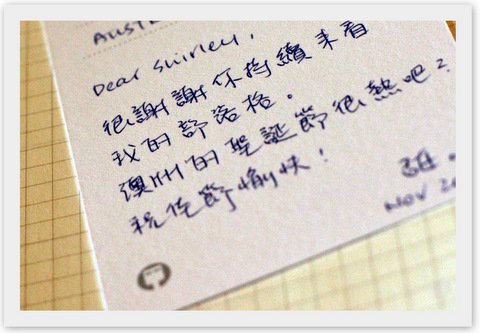 AUST
Dear Shirley,
很謝謝你持續來看
我的部落格。
澳洲的聖誕節很熱吧?
祝佳節愉快!
NOV 20